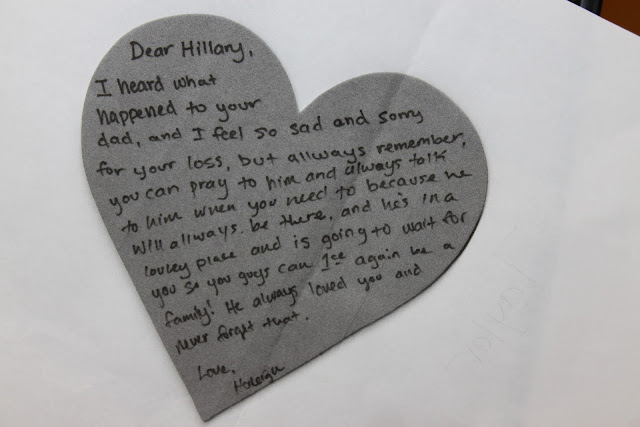 Dear Hillary,
I heard what
happened to your
dad, and I feel so sad and sorry
for your loss, but allways remember,
you can pray to him and always talk
to him when you need to because he
will allways be there, and he's in a
lovley place and is going to wait for
you so you guys can 1ce again be a
family! He always loved you and
never forget that.
Love,